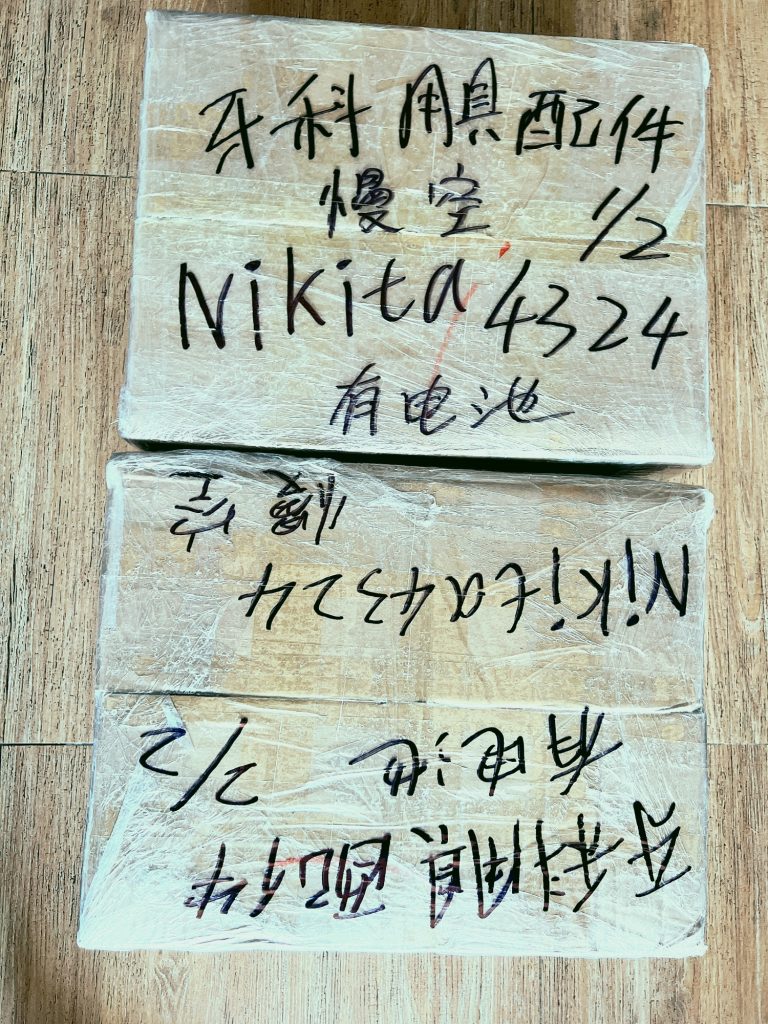 牙科用具配件
慢空 1/2
Nikita 4324
有电池
慢空
Nikita4324
有电池 2/2
牙科用具配件